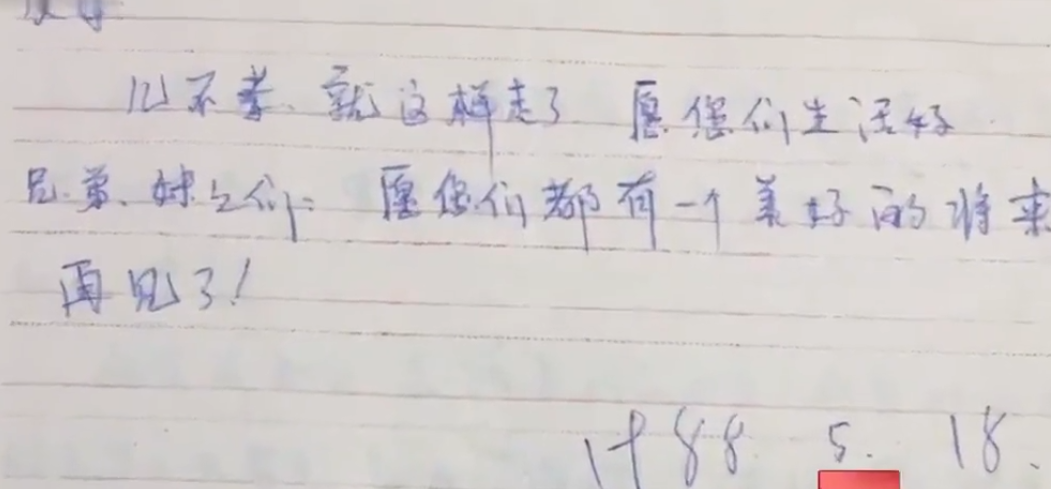 儿不孝、就这样走了 愿您们生活好
兄弟、妹々们: 愿您们都有一个美好的将来
再见了!
1988 5. 18.